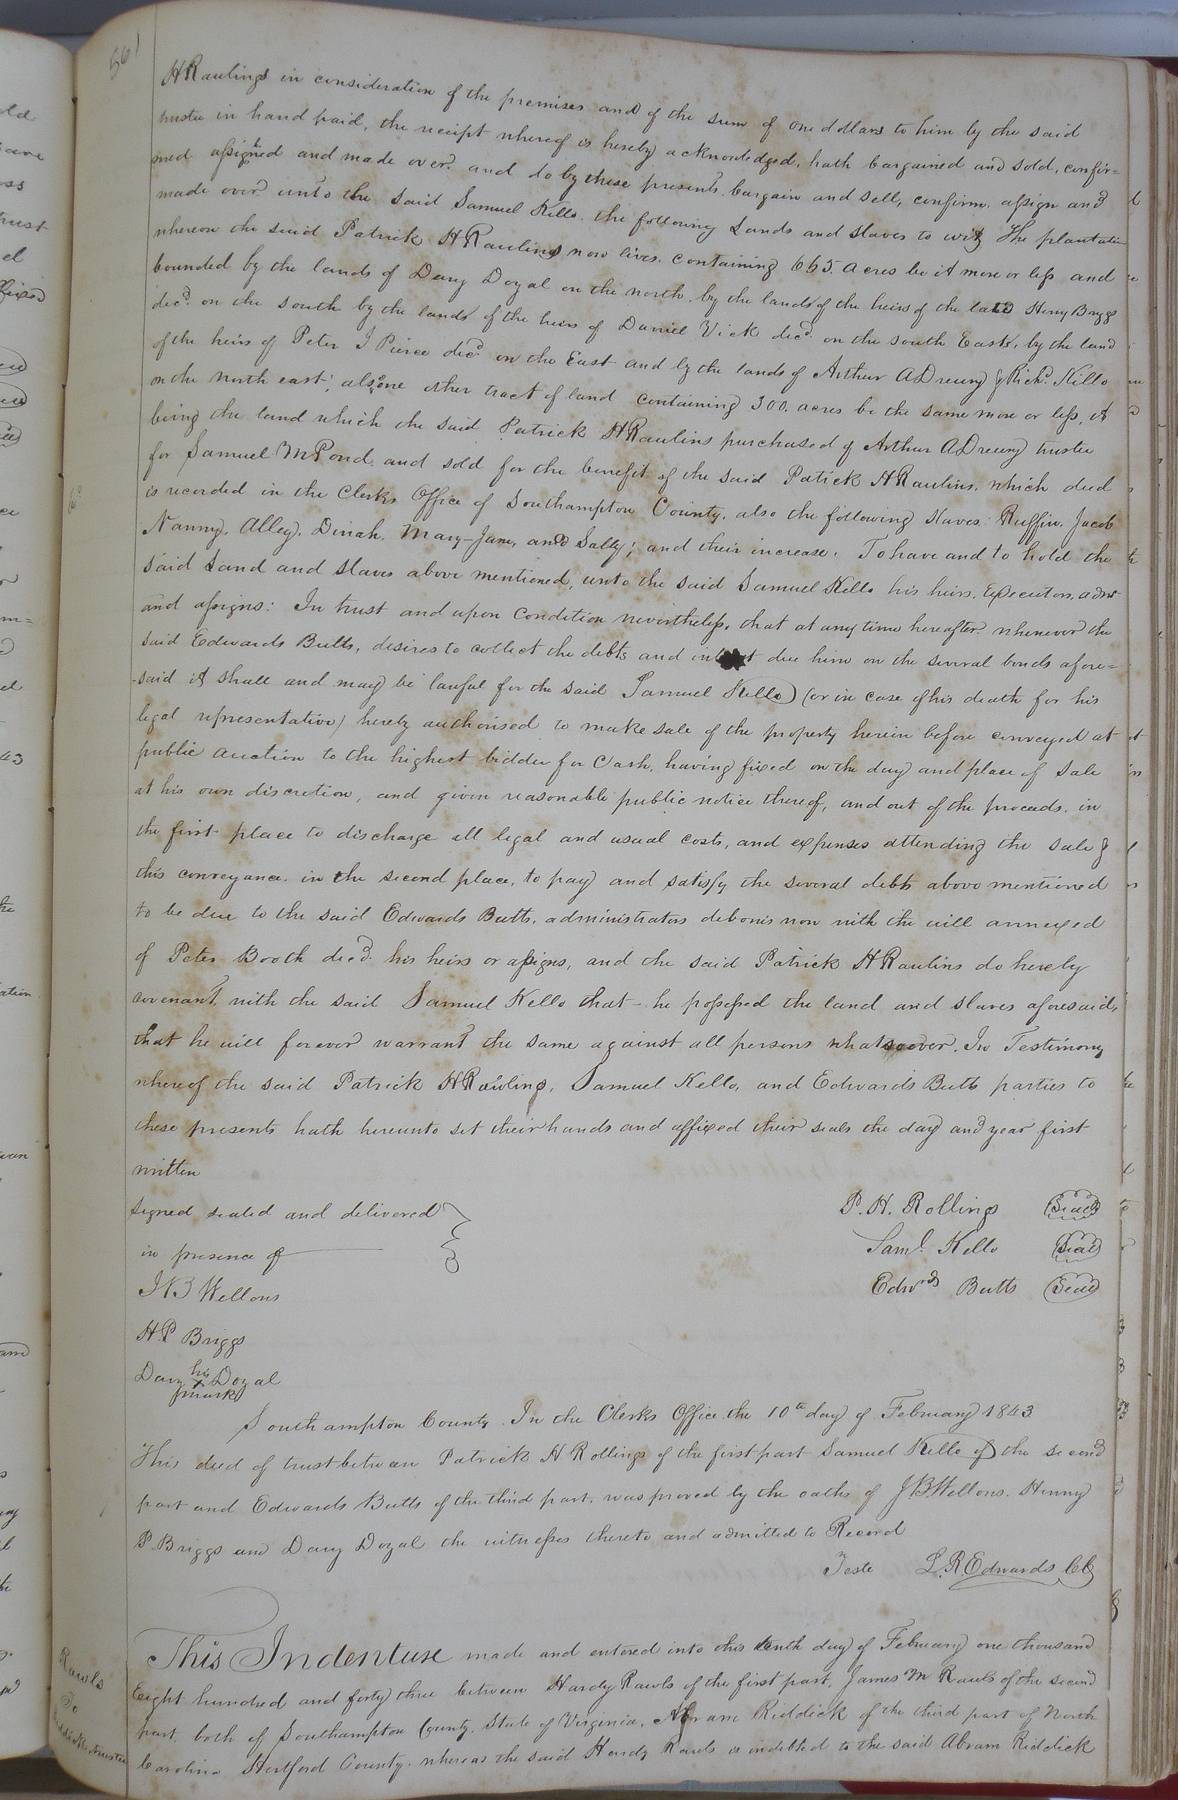 561
H Rawlings in consideration of the premises and of the sum of one dollars to him by the said
trustee in hand paid, the receipt whereof is hereby acknowledged, hath bargained and sold, confir=
med assigned and made over and do by these presents bargain and sell, confirm, assign and
made over unto the said Samuel Kello the following Lands and slaves to wit, The plantation
whereon the said Patrick H Rawlings now lives, containing 665 acres be it more or less and
bounded by the lands of Davy Doyal on the north, by the lands of the heirs of the late Henry Briggs
decd. on the south by the lands of the heirs of Daniel Vick decd. on the south East, by the land
of the heirs of Peter J Pierce decd. on the East and by the lands of Arthur A Dreury & Richd. Kello
on the north east; also one other tract of land containing 300 acres be the same more or less, it
being the land which the said Patrick H Rawlins purchased of Arthur A Dreury trustee
for Samuel M Pond and sold for the benefit of the said Patick H Rawlins, which deed
is recorded in the Clerks Office of Southampton County. also the following slaves: Ruffin, Jacob
Nanny, Alley, Dinah, Mary-Jane, and Sally; and their increase. To have and to hold the
said Land and slaves above mentioned, unto the said Samuel Kello his heirs, Executors, admr
and assigns: In trust and upon condition nevertheless, that at any time hereafter whenever the
said Edwards Butts, desires to collect the debts and due him on the several bonds afore=
-said it shall and may be lawful for the said Samuel Kello (or in case of his death for his
legal representative) hereby authorised to make sale of the property herein before conveyed at
public auction to the highest bidder for Cash, having fixed on the day and place of sale
at his own discretion, and given reasonable public notice thereof, and out of the proceeds, in
the first place to discharge all legal and usual costs, and expenses attending the sale &
this conveyance. in the second place, to pay and satisfy the several debts above mentioned
to be due to the said Edwards Butts, administrators debonis non with the will annexed
of Peter Booth decd. his heirs or assigns, and the said Patrick H Rawlins do hereby
covenant with the said Samuel Kello that he possessed the land and slaves aforesaid,
that he will forever warrant the same against all persons whatsoever. In Testimony
whereof the said Patrick H Rawlings, Samuel Kello, and Edwards Butts parties to
these presents hath hereunto set their hands and affixed their seals the day and year first
written
Signed sealed and delivered P. H. Rollings Seal
in presence of Saml. Kello Seal
J B Wellons Edwds Butts Seal
H P Briggs
Davy his x mark Doyal
Southampton County In the Clerks Office the 10th day of February 1843
This deed of trust between Patrick H Rollings of the first part Samuel Kello of the second
part and Edwards Butts of the third part, was proved by the oaths of J B Wellons, Henry
P Briggs and Davy Doyal the witnesses thereto and admitted to Record
Teste L. R. Edwards Clk
Rawls
To
Riddick Trustee
This Indenture made and entered into this tenth day of February one thousand
Eight hundred and forty three between Hardy Rawls of the first part, James M Rawls of the second
part, both of Southampton County, State of Virginia, Abram Riddick of the third part of North
Carolina Hertford County. whereas the said Hardy Rawls is indebted to the said Abram Riddick